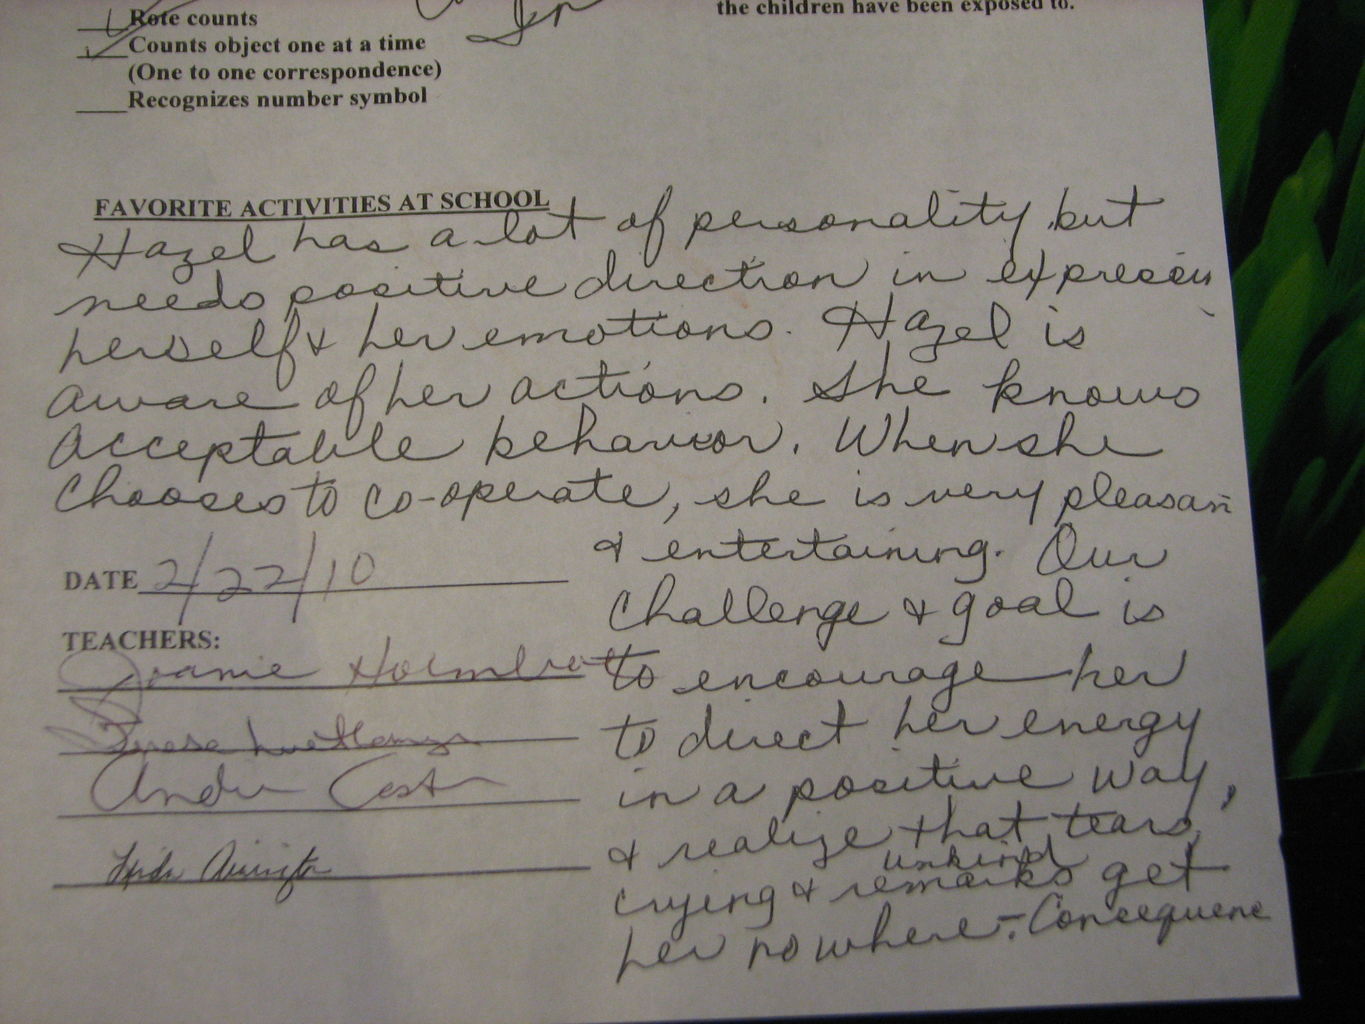 Rote counts
the children have been exposed to.
Counts object one at a time
(One to one correspondence)
Recognizes number symbol
FAVORITE ACTIVITIES AT SCHOOL
Hazel has a lot of personality but
needs positive direction in expressin
herself & her emotions. Hazel is
aware of her actions. She knows
acceptable behavior. When she
chooses to co-operate, she is very pleasan
& entertaining. Our
challenge & goal is
to encourage her
to direct her energy
in a positive way,
& realize that tears,
unkind
crying & remarks get
her nowhere - Consequenc
DATE 2/22/10
TEACHERS:
Joanie
Andre